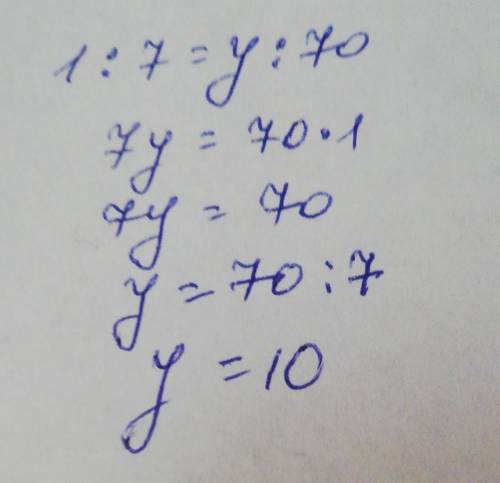 1 : 7 = y : 70
7y = 70 · 1
7y = 70
y = 70 : 7
y = 10